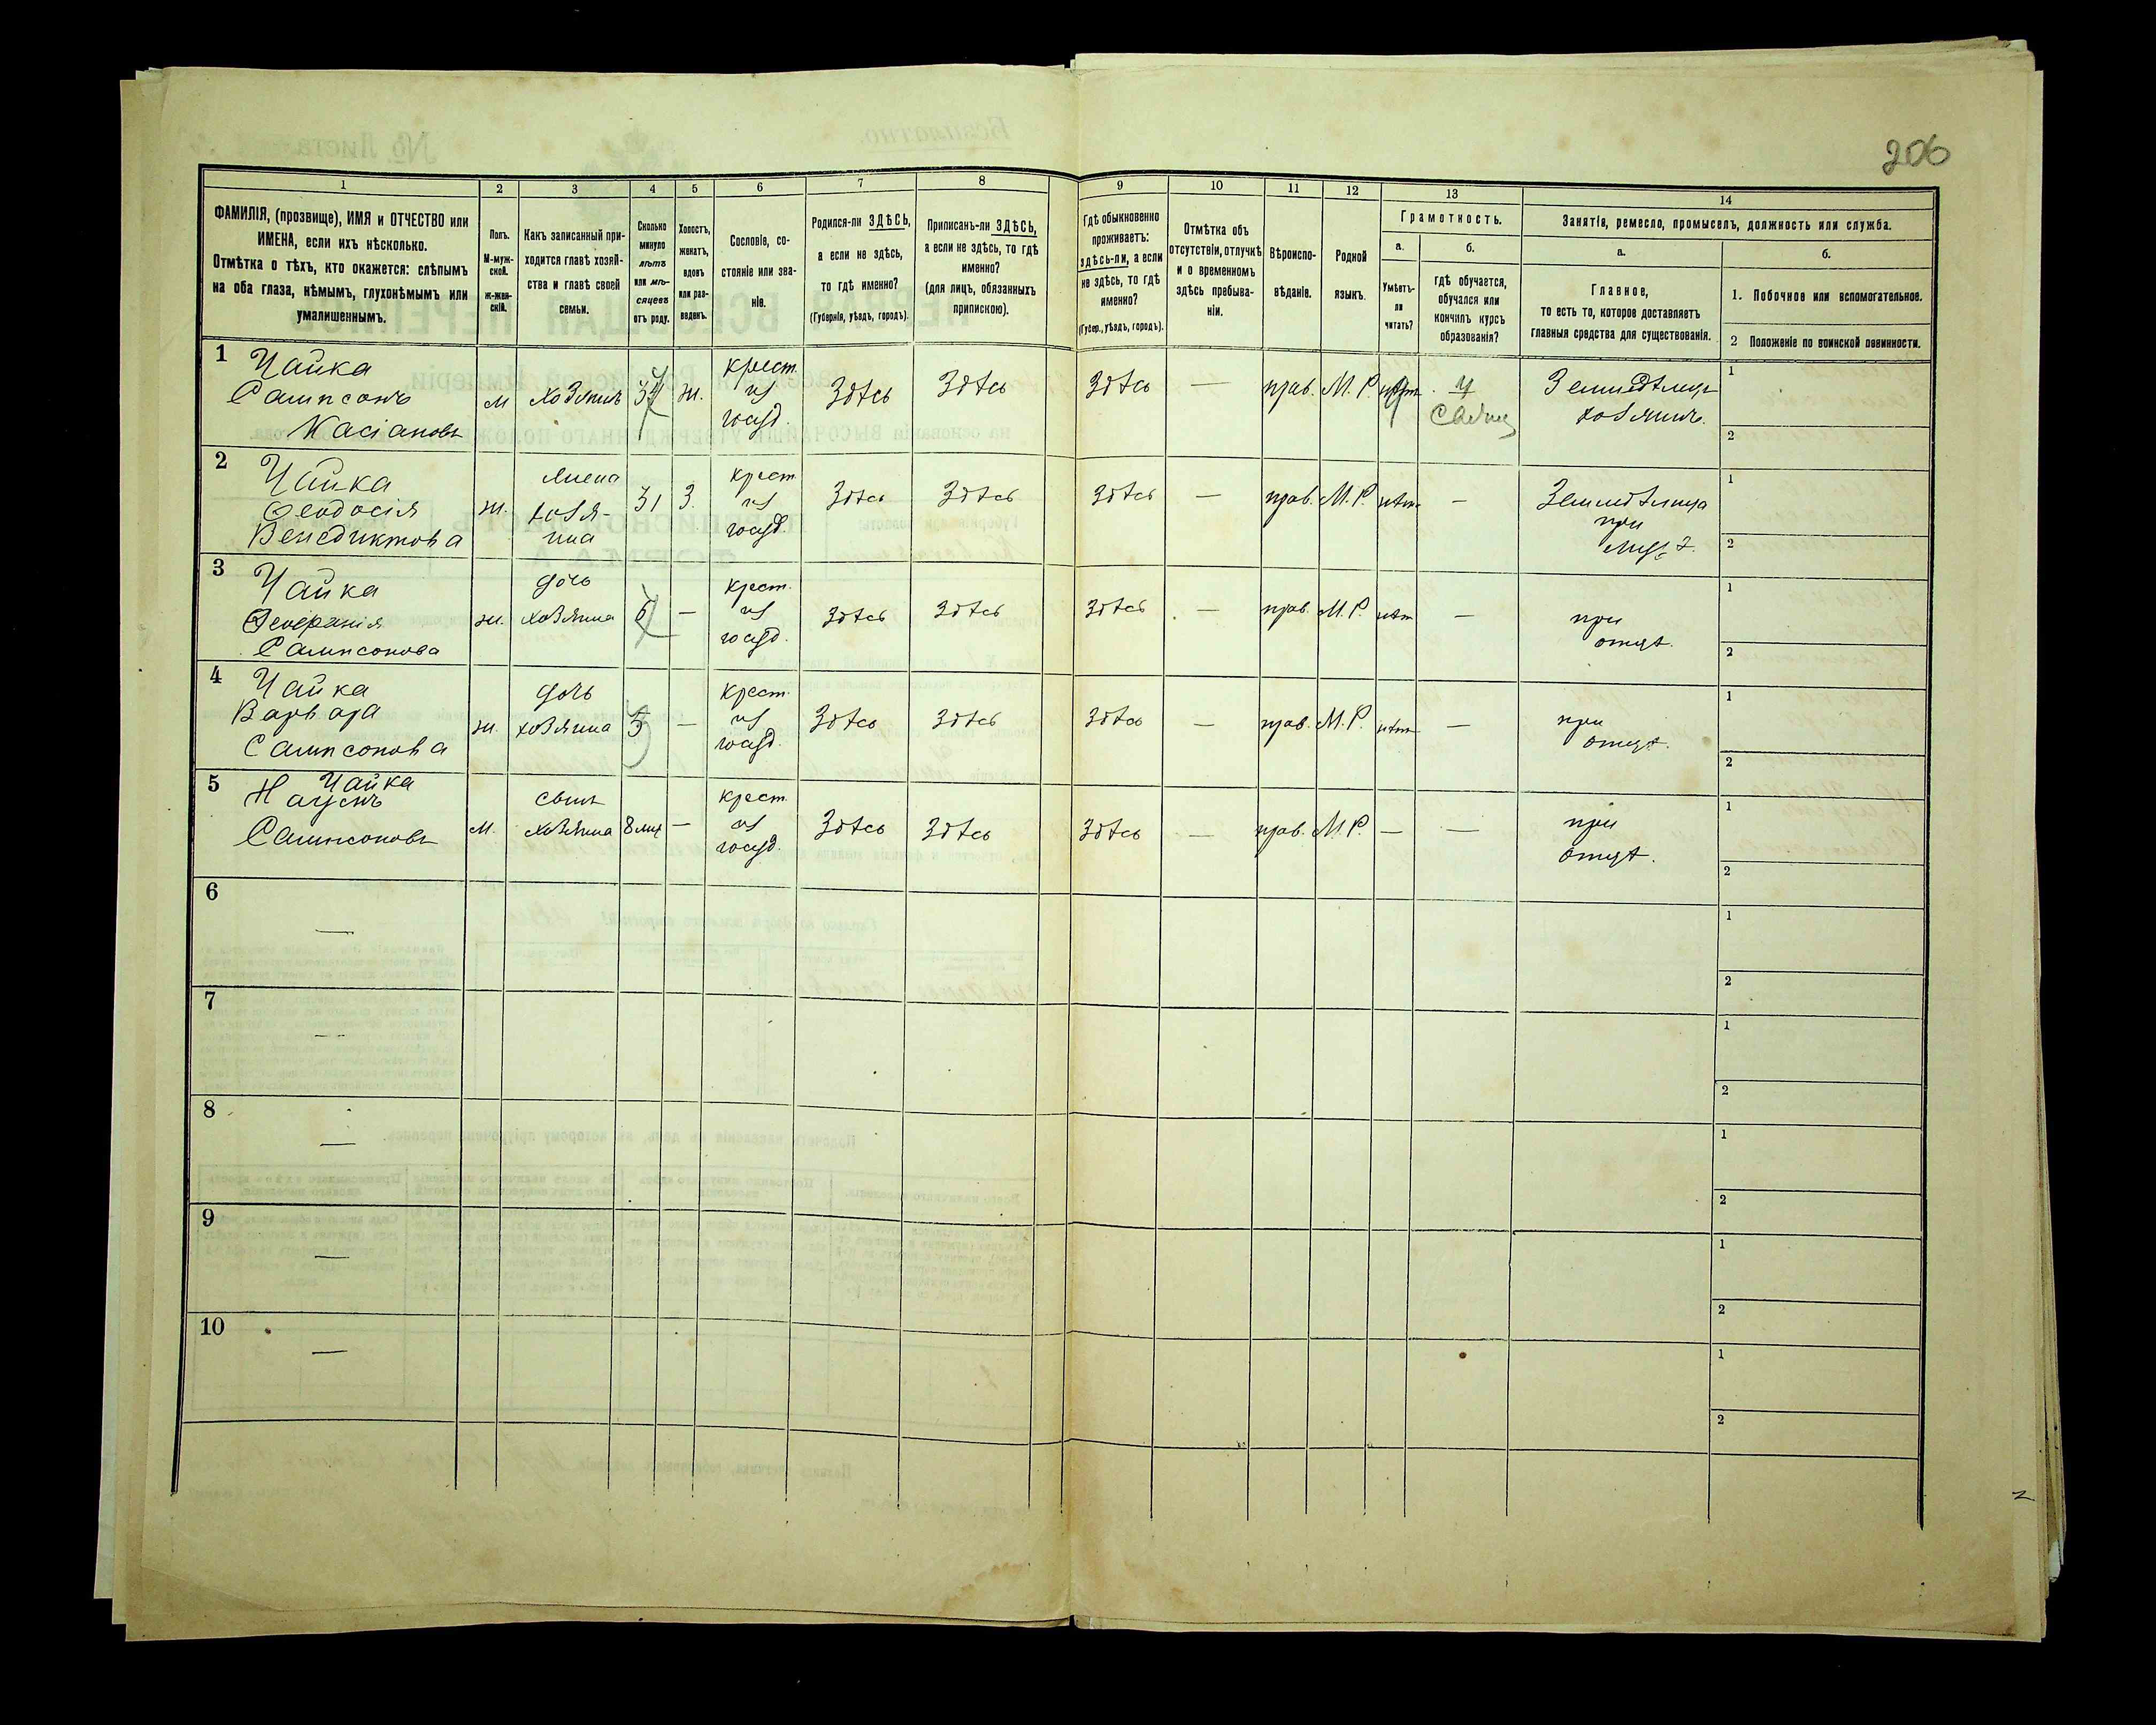 206
1 2 3 4 5 6 7 8 9 10 11 12 13 14
ФАМИЛІЯ, (прозвище), ИМЯ и ОТЧЕСТВО или
ИМЕНА, если ихъ нѣсколько.
Отмѣтка о тѣхъ, кто окажется: слѣпымъ
на оба глаза, нѣмымъ, глухонѣмымъ или
умалишеннымъ.
Полъ.
М-муж-
ской.
Ж-жен-
скій.
Какъ записанный при-
ходится главѣ хозяй-
ства и главѣ своей
семьи.
Сколько
минуло
лѣтъ
или мѣ-
сяцевъ
отъ роду.
Холостъ,
женатъ,
вдовъ
или раз-
веденъ.
Сословіе, со-
стояніе или зва-
ніе.
Родился-ли ЗДѢСЬ,
а если не здѣсь,
то гдѣ именно?
(Губернія, уѣздъ, городъ).
Приписанъ-ли ЗДѢСЬ,
а если не здѣсь, то гдѣ
именно?
(для лицъ, обязанныхъ
припискою).
Гдѣ обыкновенно
проживаетъ:
здѣсь-ли, а если
не здѣсь, то гдѣ
именно?
(Губер., уѣздъ, городъ).
Отмѣтка объ
отсутствіи, отлучкѣ
и о временномъ
здѣсь пребыва-
ніи.
Вѣроиспо-
вѣданіе.
Родной
языкъ.
Грамотность.
а.
Умѣетъ-
ли
читать?
б.
гдѣ обучается,
обучался или
кончилъ курсъ
образованія?
Занятія, ремесло, промыселъ, должность или служба.
а.
Главное,
то есть то, которое доставляетъ
главныя средства для существованія.
б.
1. Побочное или вспомогательное.
2 Положеніе по воинской повинности.
1
Чайка
Сампсонъ
Касіановъ
м
хозяинъ
ж.
крест.
из
госуд.
Здѣсь
Здѣсь
Здѣсь
—
прав.
М. Р.
Земледѣлецъ
хозяинъ.
1
2
2
Чайка
Феодосія
Венедиктова
ж.
жена
хозя-
ина
31
З.
крест
из
госуд.
Здѣсь
Здѣсь
Здѣсь
—
прав.
М. Р.
нѣт
—
Земледѣлица
при
мужѣ.
1
2
3
Чайка
Сампсонова
ж.
дочь
хозяина
6
—
крест.
из
госуд.
Здѣсь
Здѣсь
Здѣсь
—
прав.
М. Р.
нѣт
—
при
отцѣ.
1
2
4
Чайка
Варвара
Сампсонова
ж.
дочь
хозяина
—
крест.
из
госуд.
Здѣсь
Здѣсь
Здѣсь
—
прав.
М. Р.
нѣт
—
при
отцѣ.
1
2
5
Чайка
Наумъ
Сампсоновъ
м.
сынъ
хозяина
8 мц
—
крест.
из
госуд.
Здѣсь
Здѣсь
Здѣсь
—
прав.
М. Р.
—
—
при
отцѣ.
1
2
6
—
1
2
7
—
1
2
8
—
1
2
9
—
1
2
10
—
1
2